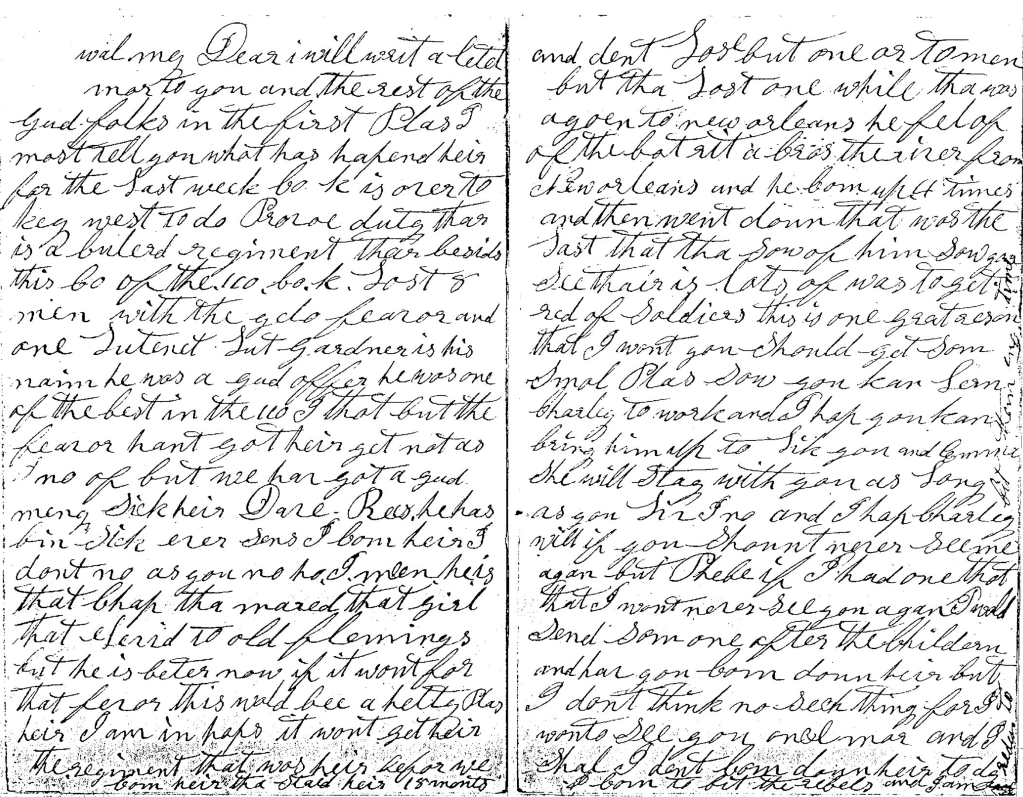 wal my Dear i will writ a litel
mor to you and the rest of the
gud folks in the first Plas I
most tell you what has hapend heir
for the Last week Co. K is over to
key west to do Provoe duty thar
is a bulerd regiment thar besids
this Co of the 110. Co. K. Lost 8
men with the yelo fearor and
one Lutenet Lut Gardner is his
naim he was a gud offer he was one
of the best in the 110 I that but the
fearor hant got heir yet not as
I no of but we har got a gud
meny Sick heir Dave Rees. he has
bin Sick ever Sens I Com heir I
dont no as you no ho I men he is
that Chap tha mared that girl
that Livid to old flemings
but he is beter now if it wont for
that feror this wold bee a helty Plas
heir I am in hops it wont get heir
the regiment that was heir befor we
Com heir tha Staid heir 18 months
and dent Los but one or to men
but tha Lost one while tha was
a goen to new orleans he fel of
of the bot rit a Cros the river from
New orleans and he Com up 4 times
and then went down that was the
Last that tha Sow of him Sow you
See thair is lots of was to get
red of Soldiers this is one grat reson
that I wont you Should get Som
Smol Plas Sow you kan Lern
Charley to work and I hop you kan
bring him up to Lik you and Emma
She will Stay with you as Long
as you Liv I no and I hap Charley
will if you Shount never See me
agan but Phebe if I had one thot
that I wont never See you agan I wold
Send Som one after the Childern
and har you Com down heir but
I don't think no Sech thing for I
wont to See you and mor and I
Shal I dent Com down heir to do
I Com to bit the rebels and I am